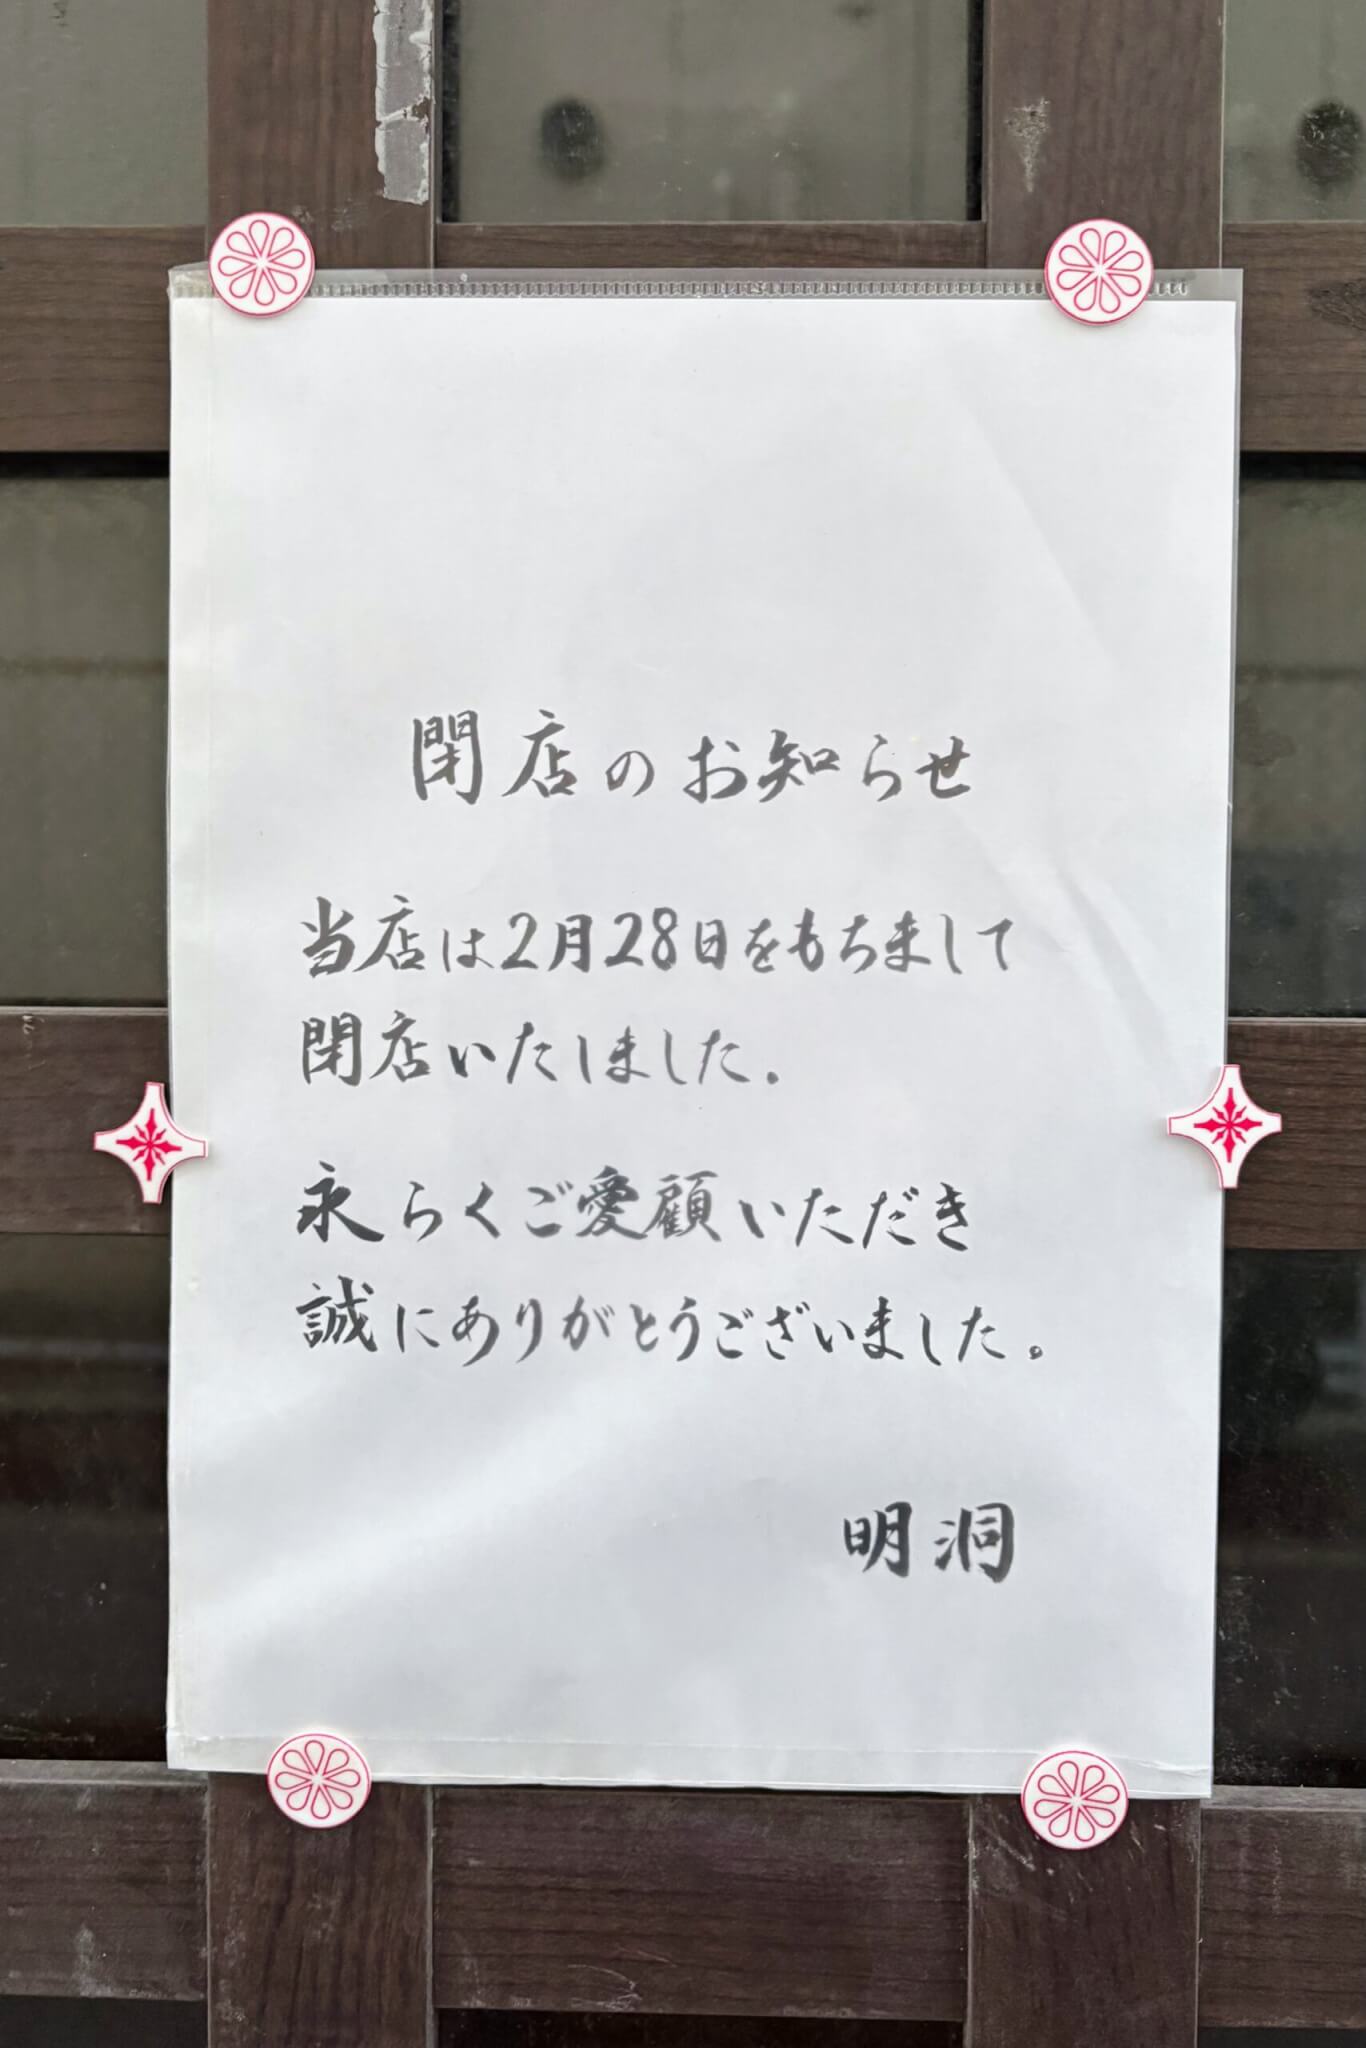 閉店のお知らせ
当店は2月28日をもちまして
閉店いたしました.
永らくご愛顧いただき
誠にありがとうございました。
明洞